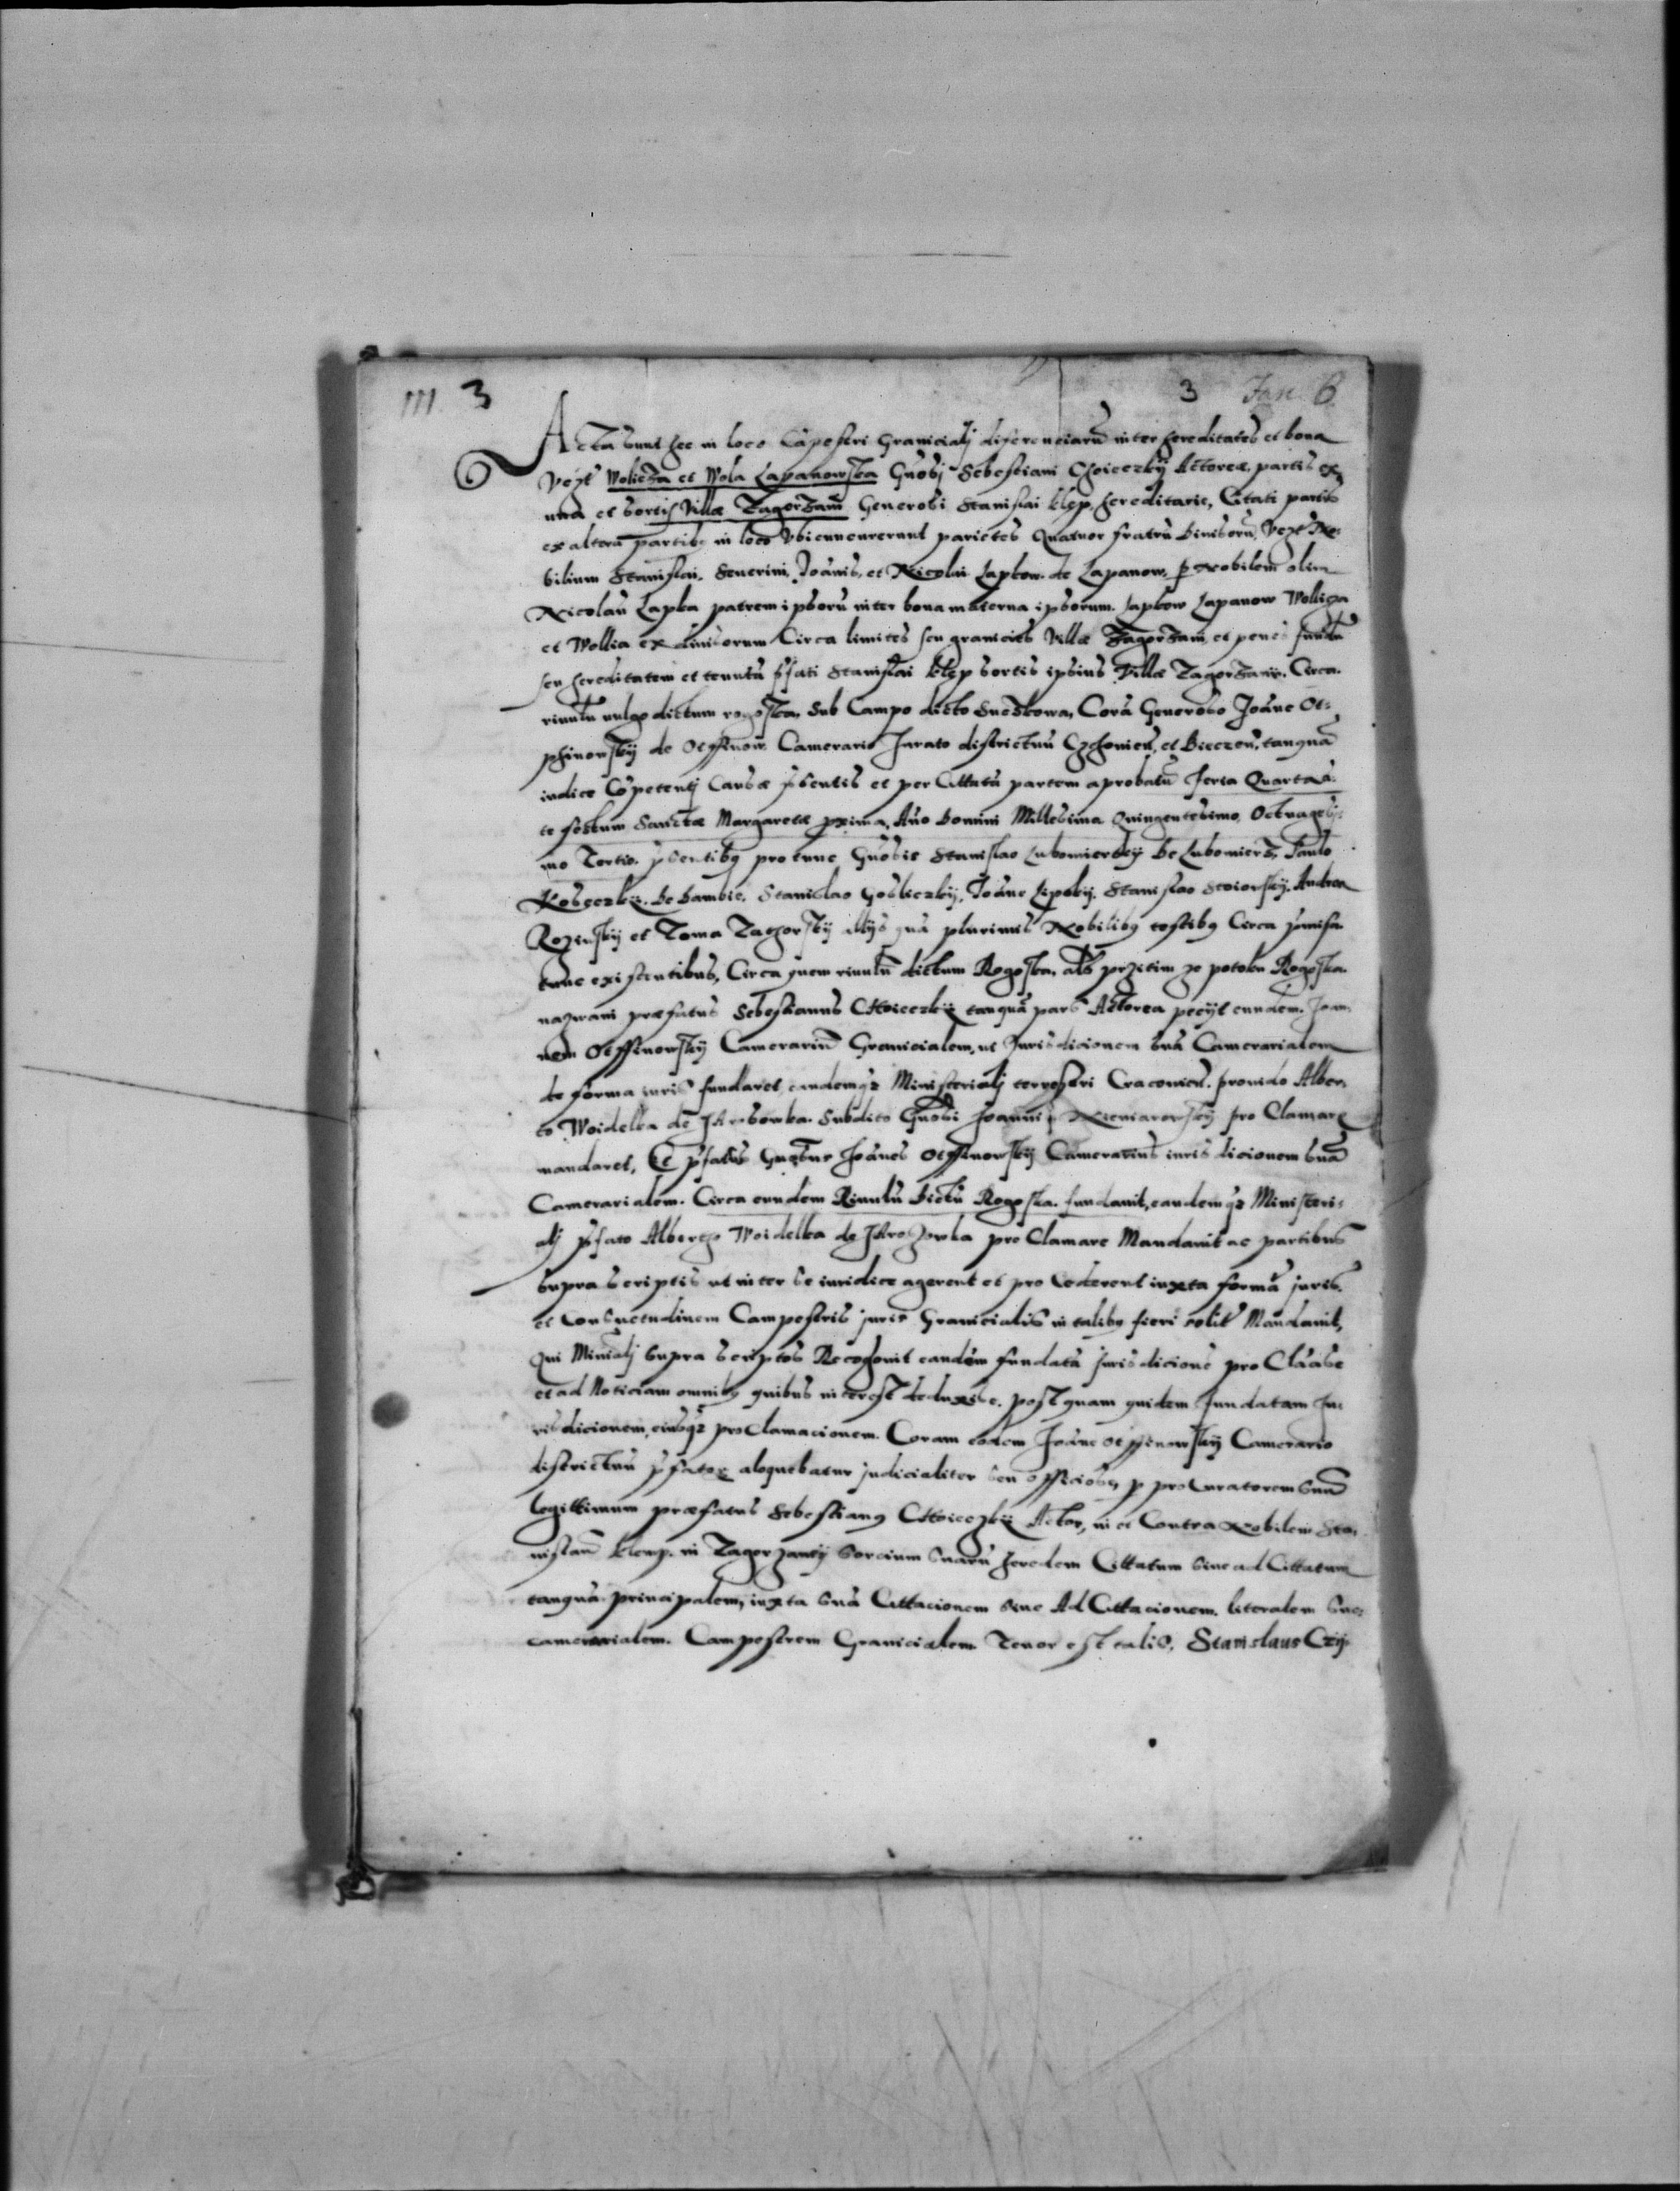 III 3 3 Fan. 6
Acta sunt hec in loco Cāpestri Granicialj diferenciarū inter hereditates et bona
Vězt Wolicza et Wola Lapanowska Gn̄osj Sebestiani Choieczkij Actoreæ partis ex
una et sortis Villæ Tagorzani Generosi Stanislai Klęp hereditarie, Citati partis
ex altera partibus in loco Vbi concurrerunt parietes Quatuor fratrū Diuisorū, Vězt No:
bilium Stanislai, Seuerini, Joānis, et Nicolai Lapkow de Lapanow, p Nobilem olim
Nicolaū Lapka patrem ipsorū inter bona materna ipsorum. Lapkow Lapanow Wollicza
et Wollia ex diuisorum Circa limites seu granicies Villæ Tagorzani, et penes fundū
seu hereditatem et tenutā p̄fati Stanislai Klęp sortis ipsius Villæ Tagorzanii. Circa
riuulū vulgo dictum rogoska, Sub Campo dicto Sneskowa, Corā Generoso Joāne Ot:
phinowskij de Otffinow Camerario Jurato districtuū Czchouień, et Bieczeń, tanquā
iudice Cōpetentj Causæ p̄sentis et per Cittatā partem aprobatū feria Quarta ā:
te festum Sanctæ Margaretæ p̄xima, Año Domini Millesimo Quingentesimo, Octuagesi:
mo Tertio. p̄sentibus pro tunc Gn̄osis Stanislao Lubomierskij De Lubomierz, Paulo
Stanislao Gosliczkij, Joāne Lipskij, Stanislao Andrea
et Toma alijs quā plurimis Nobilibus testibus Circa p̄missa
tunc existentibus, Circa quem riuulū dictum Rogoska, als przitim ze potoku Rogoska
nazwani præfatus Sebestianus Choieczkij tanquā pars Actorea peciit eundem Joan:
nem Otffinowskij Camerariū Granicialem, ut Jurisdicionem suā Camerarialem
de forma iuris fundaret eandemq3 Ministerialj terrestri Cracouień. prouido Alber:
to Woidelka de Subdito Gn̄osi Joannis pro Clamare
mandaret, Et p̄fatus Gn̄osus Joānes Otffinowskij Camerarius iurisdicionem suā
Camerarialem. Circa eundem Riuulū Dictū Rogoska fundauit, eandemq3 Ministeri:
alj p̄fato Woidelka de pro Clamare Mandauit ac partibus
supra scriptis ut inter se iuridice agerent et pro cederent iuxta formā juris
et Consuetudinem Campestris juris Granicialis in talibus fieri solit Mandauit,
Qui Minialj supra scriptos Recognouit eandem fundatā Jurisdicionē pro Clāasse
et ad Noticiam omnibus quibus interest deduxisse. post quam quidem fundatam Ju:
risdicionem, eiusq3 pro Clamacionem. Coram eodem Joāne Otffinowskij Camerario
districtuū p̄fator. aloquebatur judicialiter seu officiose, p procuratorem suū
legittimum præfatus Sebestianus Choieczkij Actor, in et Contra Nobilem Sta:
nislaū Klemp. in Tagorzanij Sorcium suarū heredem Cittatum siue ad Cittatum
tanquā principalem, iuxta suā Cittacionem siue Ad Cittacionem. literalem Suc:
camerarialem. Campestrem Granicialem. Tenor est talis, Stanislaus Czij